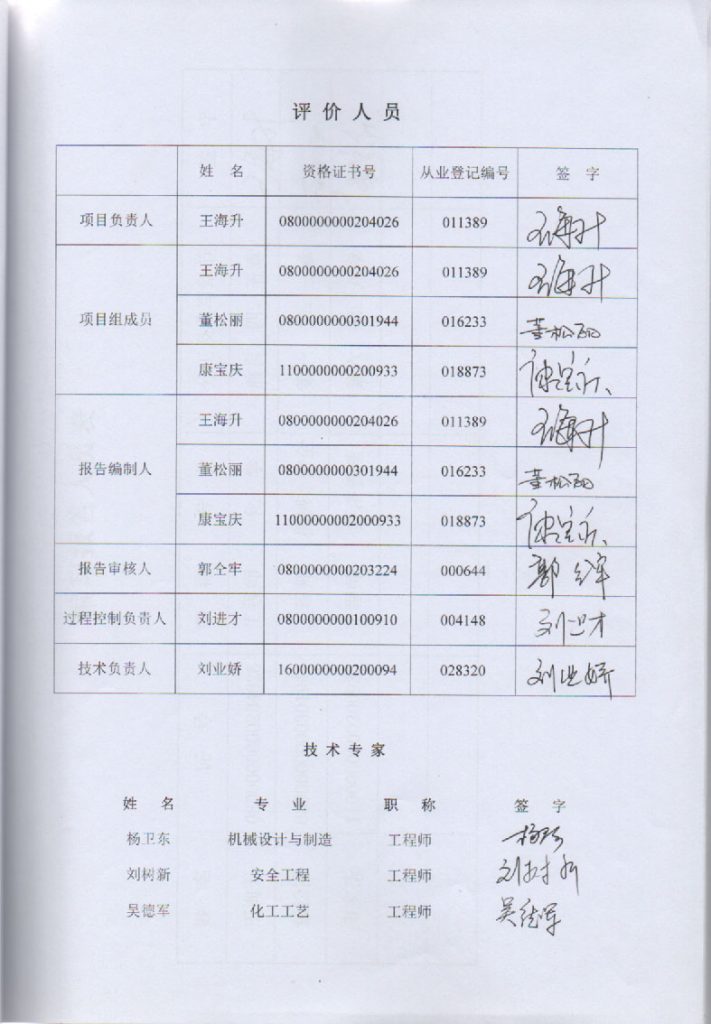 评价人员
姓 名 资格证书号 从业登记编号 签 字
项目负责人 王海升 0800000000204026 011389 王海升
项目组成员 王海升 0800000000204026 011389 王海升
董松丽 0800000000301944 016233 董松丽
康宝庆 1100000000200933 018873 康宝庆
报告编制人 王海升 0800000000204026 011389 王海升
董松丽 0800000000301944 016233 董松丽
康宝庆 11000000002000933 018873 康宝庆
报告审核人 郭仝牢 0800000000203224 000644 郭
过程控制负责人 刘进才 0800000000100910 004148 刘进才
技术负责人 刘业娇 1600000000200094 028320 刘业娇
技术专家
姓 名 专 业 职 称 签 字
杨卫东 机械设计与制造 工程师
刘树新 安全工程 工程师 刘树新
吴德军 化工工艺 工程师 吴德军